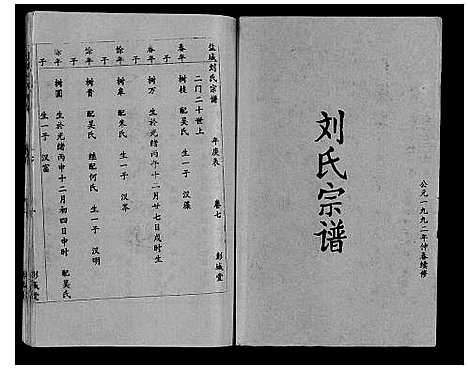 刘氏宗谱
公元一九九二年仲春续修
盐城刘氏宗谱 年庚表 卷七 彭城堂
二门二十世上
春年 树枝 配吴氏 生一子 汉藻
子
春年 树万 生於光绪丙午十二月廿七日戌时生
子
馀年 树皋 配朱氏 生一子 汉岑
子
馀年 树贵 配吴氏 继配何氏 生一子 汉明
子
馀年 树圆 生於光绪丙申十二月初四日申时 配吴氏
子 生一子 汉富
彭城堂